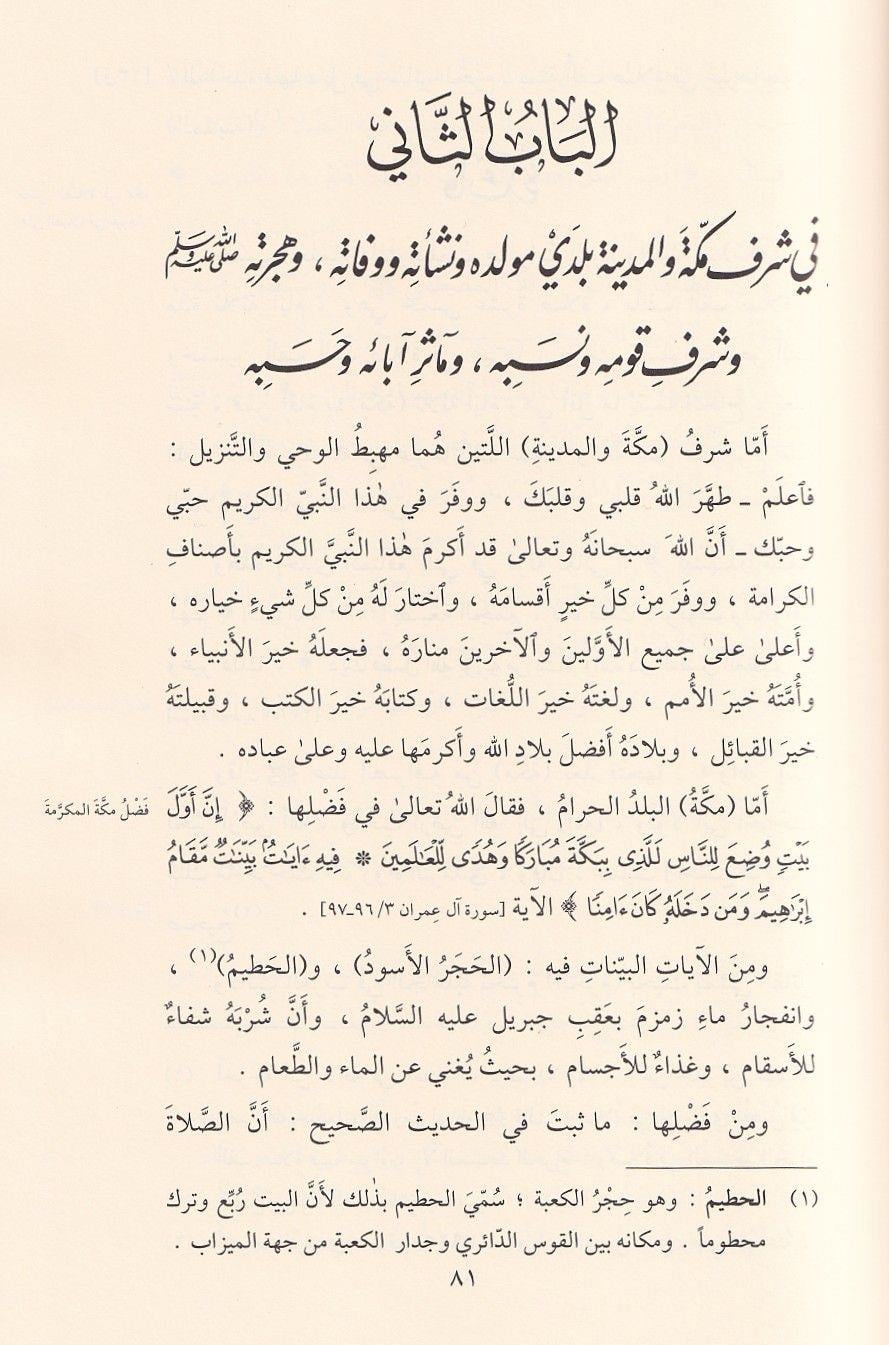 البَابُ الثَّاني
في شرف مكّةَ والمدينة بلدَيْ مولده ونشأتِه ووفاتِه ، وهجرتِه ﷺ
وشرفِ قومِه ونسَبِه ، ومآثرِ آبائه وحَسَبِه
أَمّا شرفُ (مكّةَ والمدينةِ) اللَّتين هُما مهبِطُ الوحي والتَّنزيل :
فاَعلَمْ ـ طهَّرَ اللهُ قلبي وقلبَكَ ، ووفَرَ في هٰذا النَّبيّ الكريم حبّي
وحبّك ـ أَنَّ اللهَ سبحانَهُ وتعالىٰ قد أَكرمَ هٰذا النَّبيَّ الكريم بأَصنافِ
الكرامة ، ووفَرَ مِنْ كلِّ خيرٍ أَقسامَهُ ، واَختارَ لَهُ مِنْ كلِّ شيءٍ خياره ،
وأَعلىٰ علىٰ جميع الأَوَّلينَ والآخرينَ منارَهُ ، فجعلَهُ خيرَ الأَنبياء ،
وأُمَّتَهُ خيرَ الأُمم ، ولغتَهُ خيرَ اللُّغات ، وكتابَهُ خيرَ الكتب ، وقبيلتَهُ
خيرَ القبائِل ، وبلادَهُ أَفضلَ بلادِ الله وأَكرمَها عليه وعلىٰ عباده .
أَمّا (مكّةُ) البلدُ الحرامُ ، فقالَ اللهُ تعالىٰ في فَضْلِها : ﴿ إِنَّ أَوَّلَ
فَضْلُ مكَّةَ المكرَّمةَ
بَيْتٍ وُضِعَ لِلنَّاسِ لَلَّذِى بِبَكَّةَ مُبَارَكًا وَهُدًى لِّلْعَٰلَمِينَ * فِيهِ ءَايَٰتٌۢ بَيِّنَٰتٌ مَّقَامُ
إِبْرَٰهِيمَۖ وَمَن دَخَلَهُۥ كَانَ ءَامِنًا ﴾ الآية [سورة آل عِمران ٣/ ٩٦ـ٩٧] .
ومِنَ الآياتِ البيّناتِ فيه : (الحَجَرُ الأَسودُ) ، و(الحَطيمُ)(١) ،
وانفجارُ ماءِ زمزمَ بعَقِبِ جبريل عليه السَّلامُ ، وأَنَّ شُرْبَهُ شفاءٌ
للأَسقام ، وغذاءٌ للأَجسام ، بحيثُ يُغني عن الماء والطَّعام .
ومِنْ فَضْلِها : ما ثبتَ في الحديث الصَّحيح : أَنَّ الصَّلاةَ
(١) الحطيمُ : وهو حِجْرُ الكعبة ؛ سُمّيَ الحطيم بذٰلك لأَنَّ البيت رُبِّع وترك
محطوماً . ومكانه بين القوس الدّائري وجدار الكعبة من جهة الميزاب .
٨١